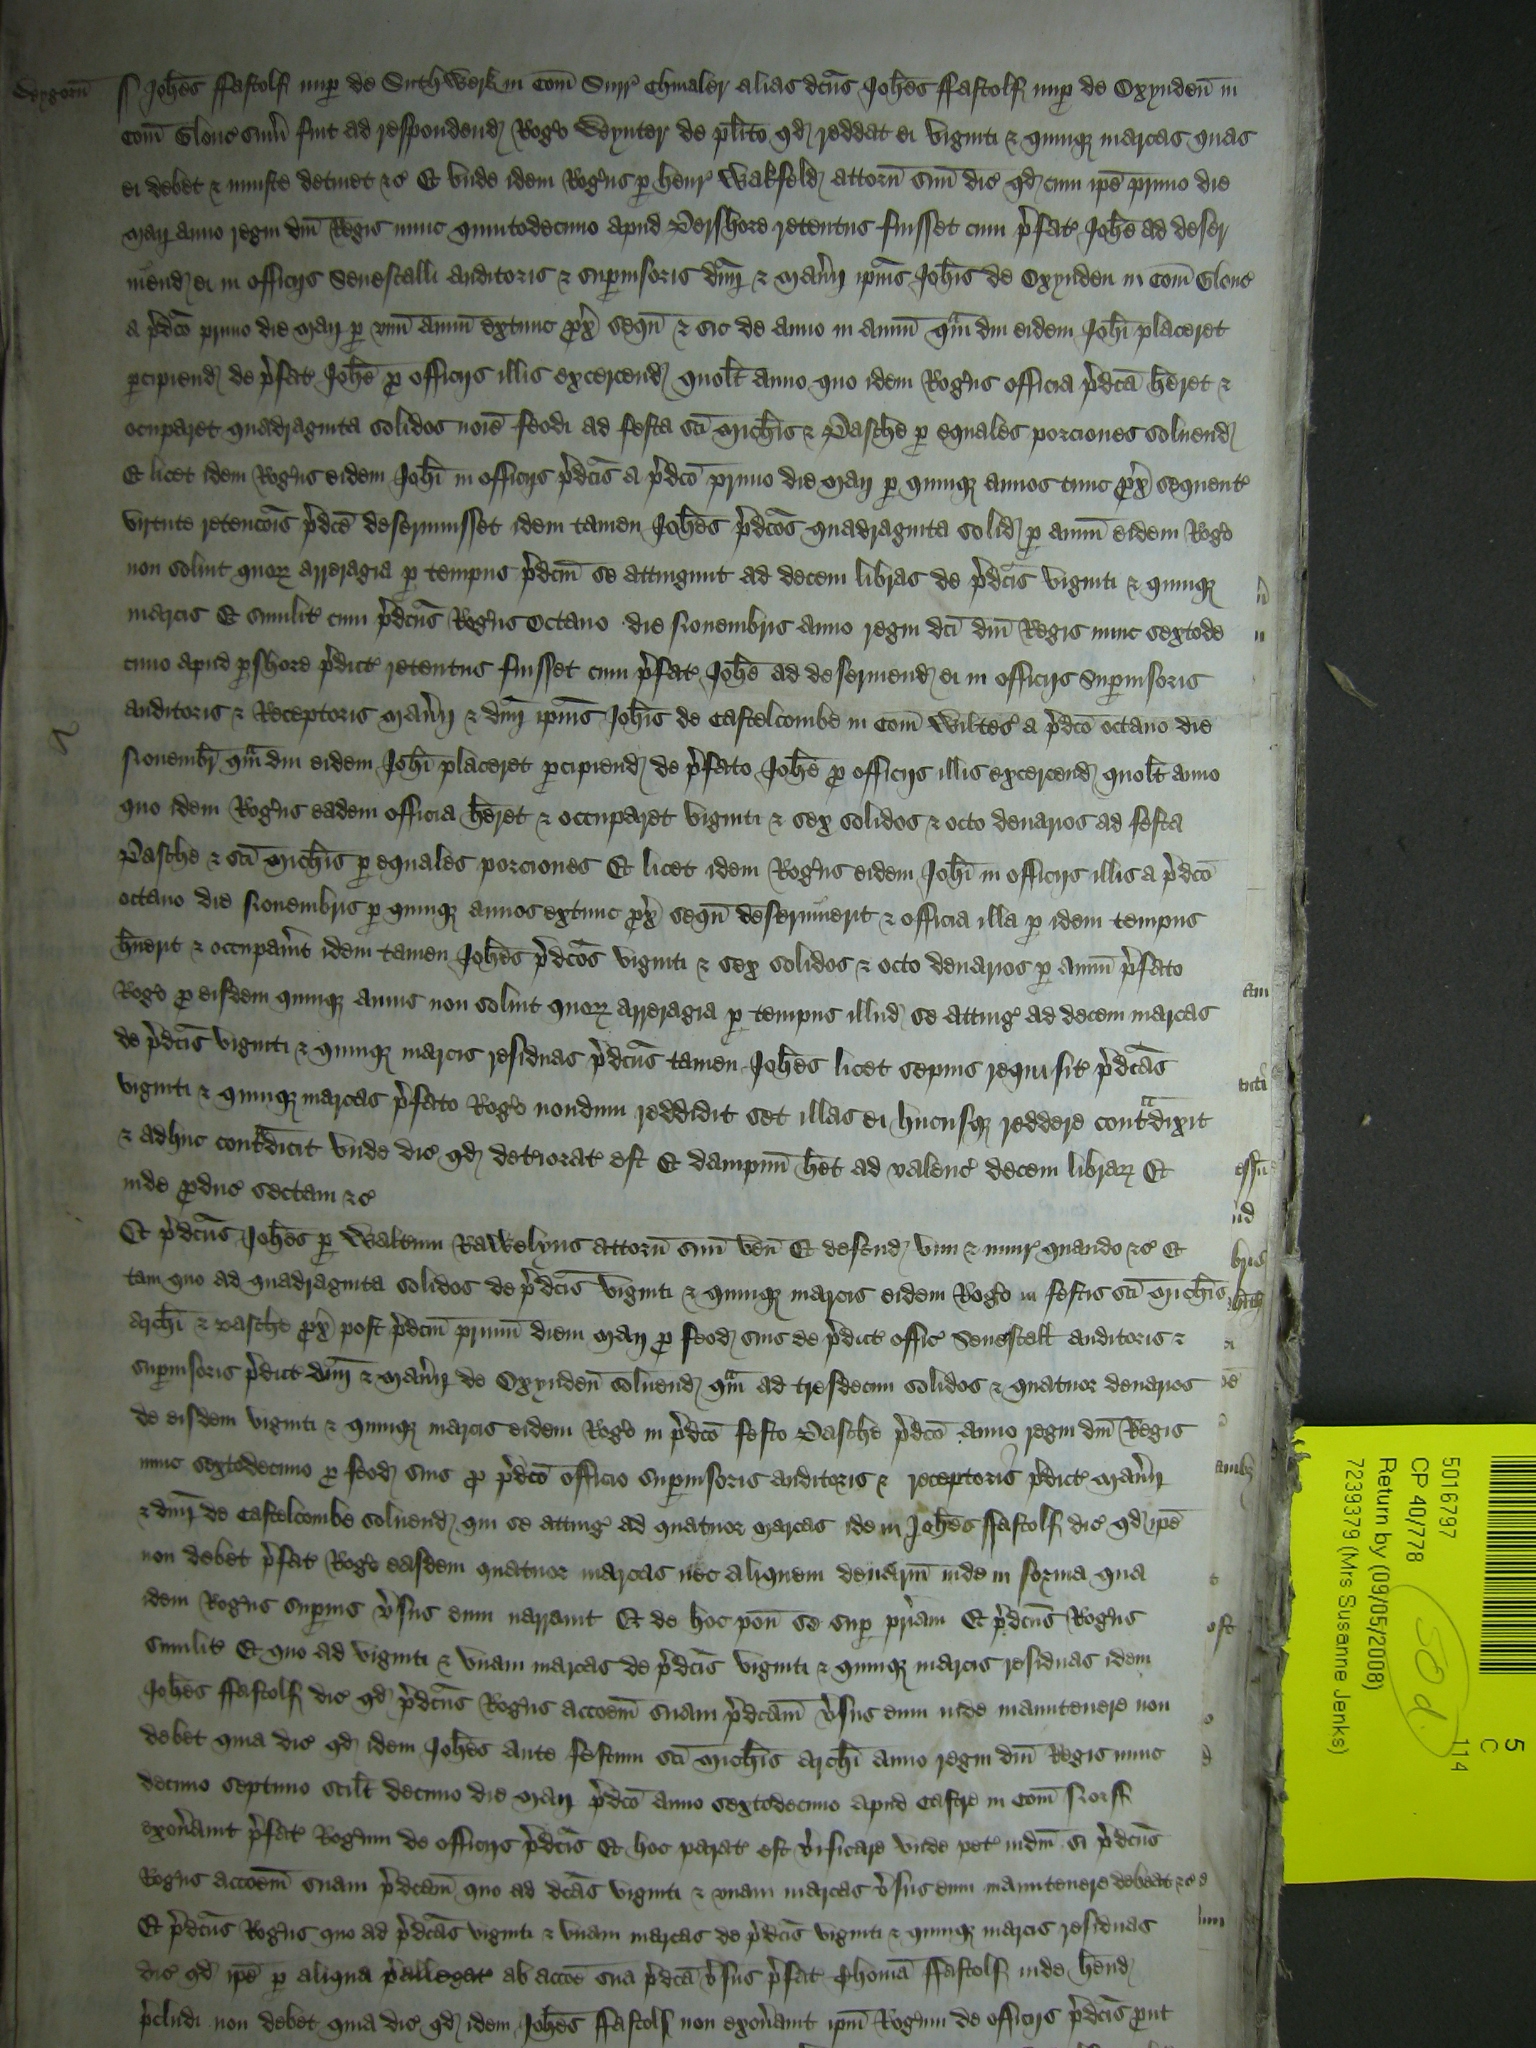 Wygorn̄ ss Joh̄es ffastolf nup̱ de Suthwerk in Com̄ Surr̕ Chiualer alias dc̄us Joh̄es ffastolf nup̱ de Oxynden̄ in
Com̄ Glouc̕ sum̄ fuit ad respondend̕ Rogo̕ Wynter de pl̄ito qd̕ reddat ei viginti & quinqꝫ marcas quas
ei debet & iniuste detinet &c̕ Et vnde idem Rogus̕ p̱ henr̕ Wakfeld̕ attorn̄ suū dic̕ qd̕ cum ip̄e primo die
Maij anno regni dn̄i Regis nunc quintodecimo apud Pershore retentus fuisset cum p̕fat̕ Joh̄e ad deser
uiend̕ ei in officijs Senescalli auditoris & sup̱uisoris dn̄ij & Man̕ij ip̄ius Joh̄is de Oxynden in Com̄ Glouc̕
a p̕dc̄o primo die Maij p̱ vnū annū extunc p̱x̕ sequn̄ & sic de anno in annū qᵃm diu eidem Joh̄i placeret
p̱cipiend̕ de p̕fat̕ Joh̄e p̱ officijs illis excercend̕ quol̄t anno quo idem Rogus̕ officia p̕dc̄a h̄eret &
ocuparet quadraginta solidos noīe feodi ad festa sc̄i Mich̄is & Pasche p̱ equales porciones soluend̕
Et licet idem Rogus̕ eidem Joh̄i in officijs p̕dc̄is a p̕dc̄o primo die Maij p̱ quinqꝫ annos tunc p̱x̕ sequent̕
virtute retencōis p̕dc̄e deseruiuisset idem tamen Joh̄es p̕dc̄os quadraginta solid̕ p̱ annū eidem Rogo̕
non soluit quoꝝ arreragia p̱ tempus p̕dc̄m se attingunt ad decem libras de p̕dc̄is viginti & quinqꝫ
marcis Et similit̕ cum p̕dc̄us Rogus̕ Octauo die Nouembris anno regni dc̄i dn̄i Regis nunc sextode
cimo apud p̱shore p̕dict̕ retentus fuisset cum p̕fat̕ Joh̄e ad deseruiend̕ ei in officijs Sup̱uisoris
auditoris & Receptoris Man̕ij & dn̄ij ip̄ius Joh̄is de Castelcombe in Com̄ Wiltes̕ a p̕dc̄o octauo die
Nouembr̕ qᵃm diu eidem Joh̄i placeret p̱cipiend̕ de p̕fato Joh̄e p̱ officijs illis excercend̕ quol̄t anno
quo idem Rogus̕ eadem officia h̄eret & occuparet viginti & sex solidos & octo denarios ad festa
Pasche & sc̄i Mich̄is p̱ equales porciones Et licet idem Rogus̕ eidem Joh̄i in officijs illis a p̕dc̄o
octauo die Nouembris p̱ quinqꝫ annos extunc p̱x̕ sequn̄ deseruierit & officia illa p̱ idem tempus
h̄uerit & occupau̕it idem tamen Joh̄es p̕dc̄os viginti & sex solidos & octo denarios p̱ annū p̕fato
Rogo̕ p̱ eisdem quinqꝫ annis non soluit quoꝝ arreragia p̱ tempus illud̕ se atting̕ ad decem marcas
de p̕dc̄is viginti & quinqꝫ marcis residuas p̕dc̄us tamen Joh̄es licet sepius requisit̕ p̕dc̄as
viginti & quinqꝫ marcas p̕fato Rogo̕ nondum reddidit set illas ei hucusqꝫ reddere contᵃdixit
& adhuc contᵃdicit vnde dic̕ qd̕ deteriorat̕ est Et dampnū h̄et ad valenc̕ decem libraꝝ Et
inde p̱duc̕ sectam &c̕
Et p̕dc̄us Joh̄es p̱ Walterum Rawelyns attorn̄ suū ven̄ Et defend̕ vim & iniur̕ quando &c̕ Et
tam quo ad quadraginta solidos de p̕dc̄is viginti & quinqꝫ marcis eidem Rogo̕ in festis sc̄i Mich̄is
arch̄i & Pasche p̱x̕ post p̕dc̄m primū diem Maij p̱ feod̕ suis de p̕dict̕ offic̕ Senescall̄ auditoris &
sup̱uisoris p̕dict̕ dn̄ij & Man̕ij de Oxynden̄ soluend̕ qᵃm ad tresdecim solidos & quatuor denarios
de eisdem viginti & quinqꝫ marcis eidem Rogo̕ in p̕dc̄o festo Pasche p̕dc̄o anno regni dn̄i Regis
nunc sextodecimo p̱ feod̕ suis p̱ p̕dc̄o officio sup̱uisoris auditoris & receptoris p̕dict̕ Man̕ij
& dn̄ij de Castelcombe soluend̕ qui se atting̕ ad quatuor marcas idem Joh̄es ffastolf dic̕ qd̕ ip̄e
non debet p̕fat̕ Rogo̕ easdem quatuor marcas nec aliquem denariū inde in forma qua
idem Rogus̕ sup̱ius v̕sus eum narrauit Et de hoc pon̄ se sup̱ pr̕iam Et p̕dc̄us Rogus̕
similit̕ Et quo ad viginti & vnam marcas de p̕dc̄is viginti & quinqꝫ marcis residuas idem
Joh̄es ffastolf dic̕ qd̕ p̕dc̄us Rogus̕ acc̄oem suam p̕dc̄am v̕sus eum inde manutenere non
debet quia dic̕ qd̕ idem Joh̄es ante festum sc̄i Mich̄is arch̄i anno regni dn̄i Regis nunc
decimo septimo scil̄t decimo die Maij p̕dc̄o anno sextodecimo apud Castre in Com̄ Norff
exon̕auit p̕fat̕ Rogum̕ de officijs p̕dc̄is Et hoc parat̕ est v̕ificare vnde pet̕ iudm̄ si p̕dc̄us
Rogus̕ acc̄oem suam p̕dc̄am quo ad dc̄as viginti & vnam marcas v̕sus eum manutenere debeat &c̕
Et p̕dc̄us Rogus̕ quo ad p̕dc̄as viginti & vnam marcas de p̕dc̄is viginti & quinqꝫ marcis residuas
dic̕ qd̕ ip̄e p̱ aliqua p̕allegat̕ ab acc̄oe sua p̕dc̄a v̕sus p̕fat̕ Thomā ffastolf inde h̄end̕
p̕cludi non debet quia dic̕ qd̕ idem Joh̄es ffastolf non exon̕auit ip̄m Rogum̕ de officijs p̕dc̄is p̱ut
5016797
CP 40/778
Return by (09/05/2008)
7239379 (Mrs Susanne Jenks)
50 d.
5
C
114